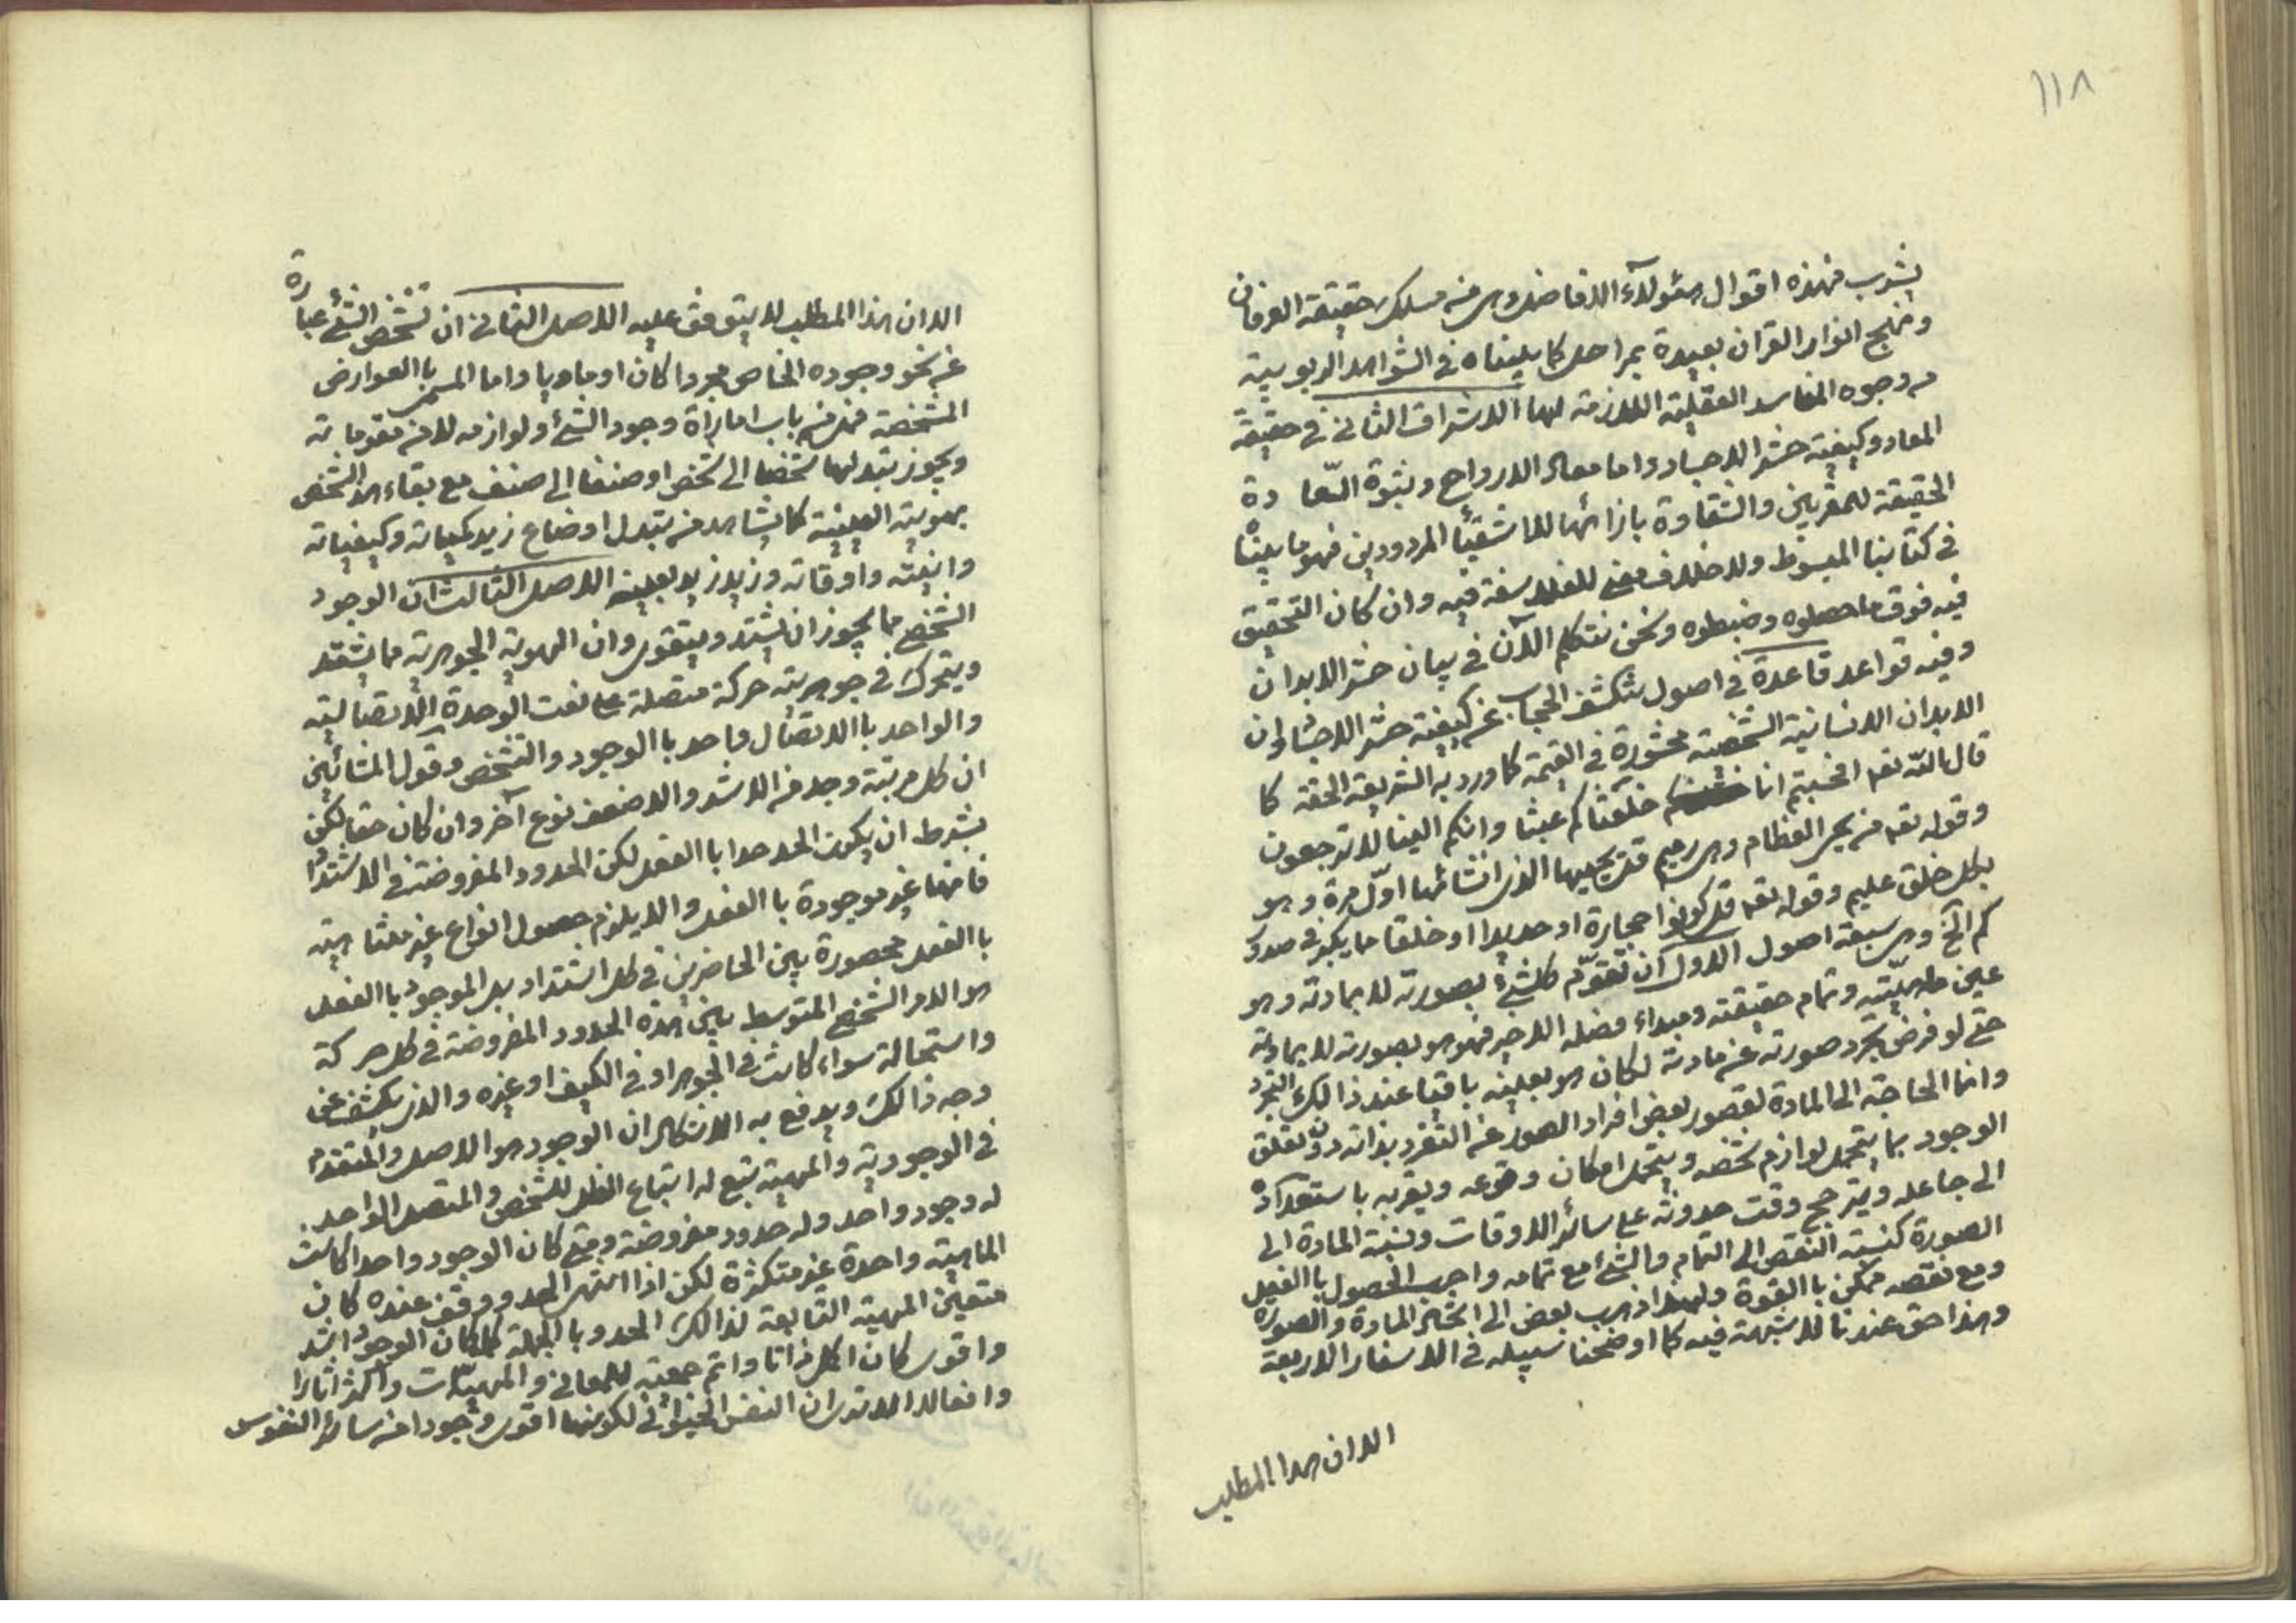 ١١٨
يثرب فهذه اقوال هئولاء الافاضل وهى من مسلك حقيقة العرفان
ومنهج انوار القران بعيدة بمراحل كما بيناه فى الشواهد الربوبية
من وجوه المفاسد العقلية اللازمة لها الاشراق الثانى فى حقيقة
المعاد وكيفية حشر الاجساد واما معاد الارواح وثبوة السعا دة
الحقيقة للمقربين والشقاوة بازائها للاشقيأ المردودين فهو ما بيناه
فى كتابنا المبسوط ولا خلاف معنى للفلاسفة فيه وان كان التحقيق
فيه فوق ما حصلوه وضبطوه ونحن نتكلم الآن فى بيان حشر الابدان
وفيه قواعد قاعدة فى اصول ينكشف الحجاب عن كيفية حشر الاجساد وان
الابدان الانسانية الشخصية محشورة فى القيمة كما ورد به الشريعة الحقة كما
قال الله تعه افحسبتم انما خلقناكم عبثا وانكم الينا لا ترجعون
وقوله تعه من يحى العظام وهى رميم قل يحييها الذى انشائها اول مرة وهو
بكل خلق عليم وقوله تعه قل كونوا حجارة او حديدا او خلقا مما يكبر فى صدور
كم الخ وهى سبعة اصول الاول ان تقوّم كلشئ بصورته لا بمادته وهو
عين ماهيّته وتمام حقيقته ومبداء فصله الاخير فهو هو بصورته لا بمادته
حتى لو فرض تجرد صورته عن مادته لكان هو بعينه باقيا عند ذالك التجرد
وانما الحاجة الى المادة لقصور بعض افراد الصور عن التفرد بذاته دون تعلق
الوجود بما يتحمل لوازم شخصه ويتحمل امكان وقوعه ويقربه باستعداده
الى جاعله ويترجح وقت حدوثه على سائر الاوقات ونسبة المادة الى
الصورة كنسبة النقص الى التمام والشئ مع تمامه واجب الحصول با الفعل
ومع نقصه ممكن با القوة ولهذا ذهب بعض الى اتحاد المادة والصورة
وهذا حق عندنا لا شبهة فيه كما اوضحنا سبيله فى الاسفار الاربعة
الا ان هذا المطلب
الا ان هذا المطلب لا يتوقف عليه الاصل الثانى ان تشخص الشئ عبارة
عن نحو وجوده الخاص مجردا كان او ماديا واما المسمى با العوارض
المشخصة فهى من باب امارأة وجود الشئ ولوازمه لا من مقوماته
ويجوز تبدلها شخصا الى شخص او صنفا الى صنف مع بقاء هذا الشخص
بهويته العينية كما يشاهد من تبدل اوضاع زيد كمياته وكيفياته
وانيته واوقاته وزيد زيد بعينه الاصل الثالث ان الوجود
الشخصى مما يجوز ان يشتد ويتقوى وان الهوية الجوهرية مما يشتد
ويتحرك فى جوهريته حركة متصلة على نعت الوحدة الاتصالية
والواحد با الاتصال واحد با الوجود والتشخص وقول المشائين
ان كل مرتبة وحد من الاشد والاضعف نوع آخر وان كان حقا لكن
بشرط ان يكون الحد حدا با الفعل لكن الحدود المفروضة فى الاشتداد
فانها غير موجودة با الفعل والا يلزم حصول انواع غير متناهية
با الفعل محصورة بين الحاضرين فى كل اشتداد بل الموجود با الفعل
هو الامر الشخصى المتوسط بين هذه الحدود المفروضة فى كل حركة
واستحالة سواء كانت فى الجوهر او فى الكيف او غيره والذى يكشف عن
وجه ذالك ويدفع به الاشكال ان الوجود هو الاصل والمتقدم
فى الوجودية والمهية تتبع له اتباع الظل للشخص والمتصل الواحد.
له وجود واحد وله حدود مفروضة ومتى كان الوجود واحدا كانت
الماهية واحدة غير متكثرة لكن اذا انتهى الى حد ووقف عنده كان
متعين المهية التابعة لذالك الحد وبا الجملة كلما كان الوجود اشد
واقوى كان اكمل ذاتا واتم جمعية للمعانى والمهيات واكثر اثارا
وافعالا الا ترى ان النفس الحيوانى لكونها اقوى وجودا من سائر النفوس